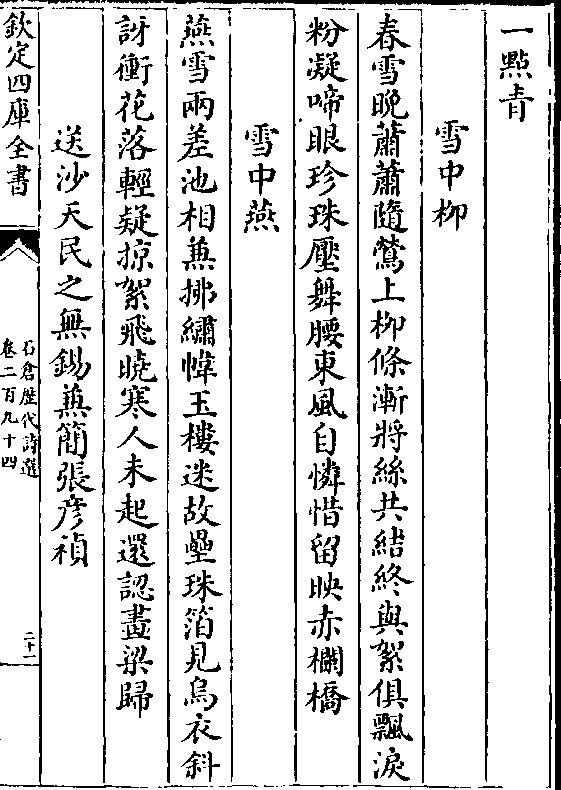 一點青
雪中柳
春雪晚蕭蕭隨鶯上柳條漸將絲共結終與絮俱飄淚
粉凝啼眼珍珠壓舞腰東風自憐惜留映赤欄橋
雪中燕
燕雪兩差池相兼拂繡幃玉樓迷故壘珠箔見烏衣斜
訝衝花落輕疑掠絮飛曉寒人未起還認畫梁歸
送沙天民之無錫兼簡張彦禎
欽定四庫全書
石倉歴代詩選
卷二百九十四
二十一